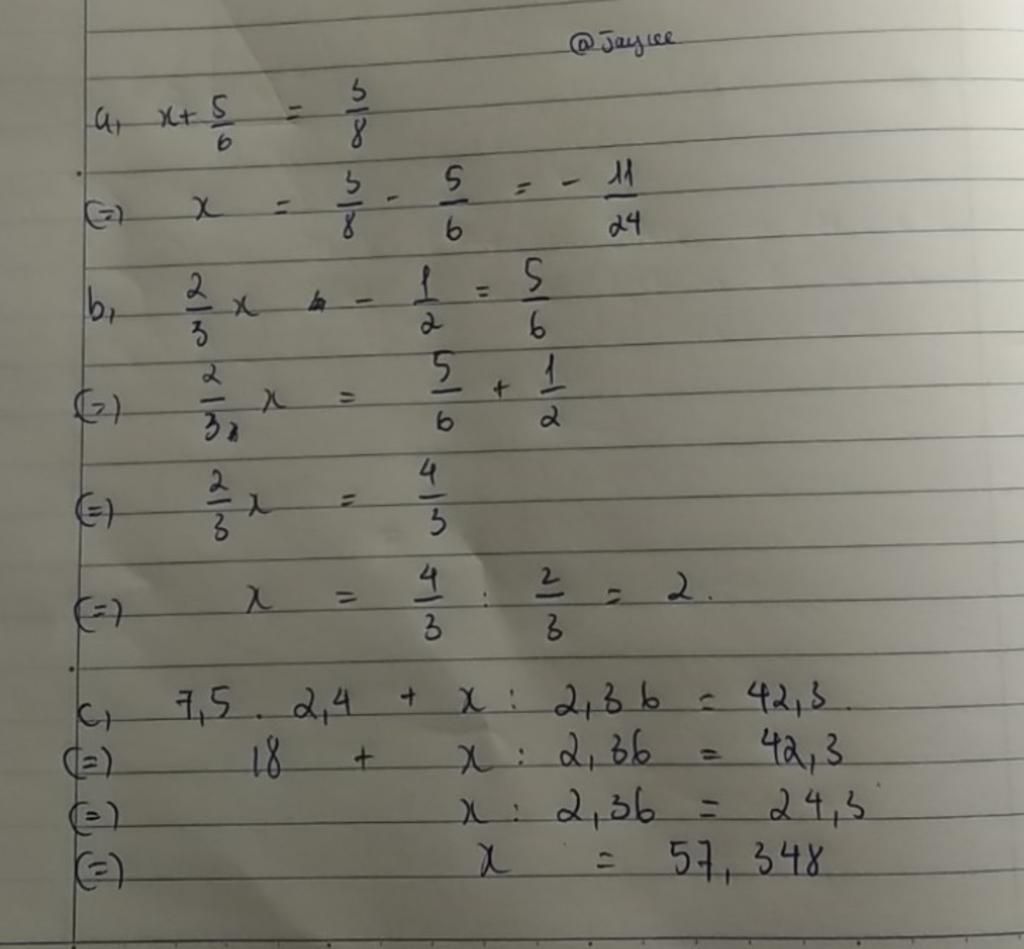 @Jaycee
a, x + 5/6 = 3/8
(=) x = 3/8 - 5/6 = - 11/24
b, 2/3 x - 1/2 = 5/6
(=) 2/3 x = 5/6 + 1/2
(=) 2/3 x = 4/3
(=) x = 4/3 : 2/3 = 2.
c, 7,5 . 2,4 + x : 2,36 = 42,3.
(=) 18 + x : 2,36 = 42,3
(=) x : 2,36 = 24,3
(=) x = 57,348